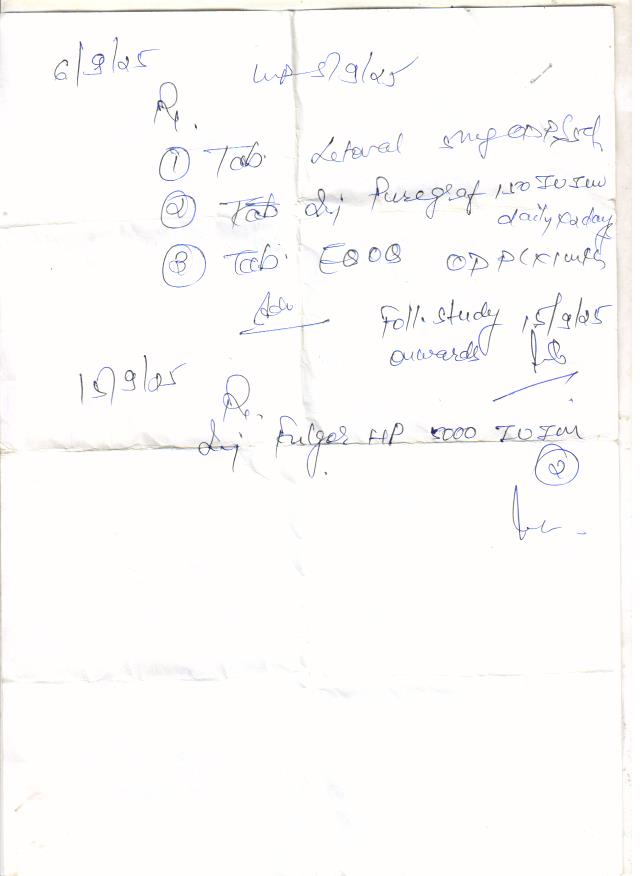 6/9/25 LMP 5/9/25
Rx.
① Tab. Letoval 5mg ODPC5d
② Inj Puregraf 150 IU IM
daily x 2 day
③ Tab. EQOQ ODPC x 1 mth
Adv
Foll. study 15/9/25
onwards
15/9/25
Rx.
Inj Fulgor HP 5000 IU IM
②